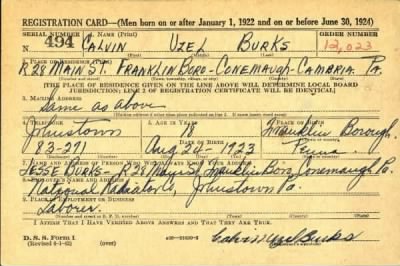 REGISTRATION CARD—(Men born on or after January 1, 1922 and on or before June 30, 1924)
SERIAL NUMBER 1. NAME (Print) ORDER NUMBER
494 CALVIN UZEL BURKS 12,023
2. PLACE OF RESIDENCE (Print)
R 28 MAIN ST. FRANKLIN BORO - CONEMAUGH - CAMBRIA. PA.
[THE PLACE OF RESIDENCE GIVEN ON THE LINE ABOVE WILL DETERMINE LOCAL BOARD
JURISDICTION; LINE 2 OF REGISTRATION CERTIFICATE WILL BE IDENTICAL]
3. MAILING ADDRESS
Same as above
4. TELEPHONE 5. AGE IN YEARS 6. PLACE OF BIRTH
Johnstown 18 Franklin Borough
DATE OF BIRTH
83-271 Aug 24 - 1923 Penna
7. NAME AND ADDRESS OF PERSON WHO WILL ALWAYS KNOW YOUR ADDRESS
JESSE BURKS - R 28 Main St, Franklin Boro, Conemaugh Pa.
8. EMPLOYER'S NAME AND ADDRESS
National Radiator Co, Johnstown Pa.
9. PLACE OF EMPLOYMENT OR BUSINESS
Laborer
I AFFIRM THAT I HAVE VERIFIED ABOVE ANSWERS AND THAT THEY ARE TRUE.
D. S. S. Form 1
(Revised 6-1-42)
Calvin Uzel Burks